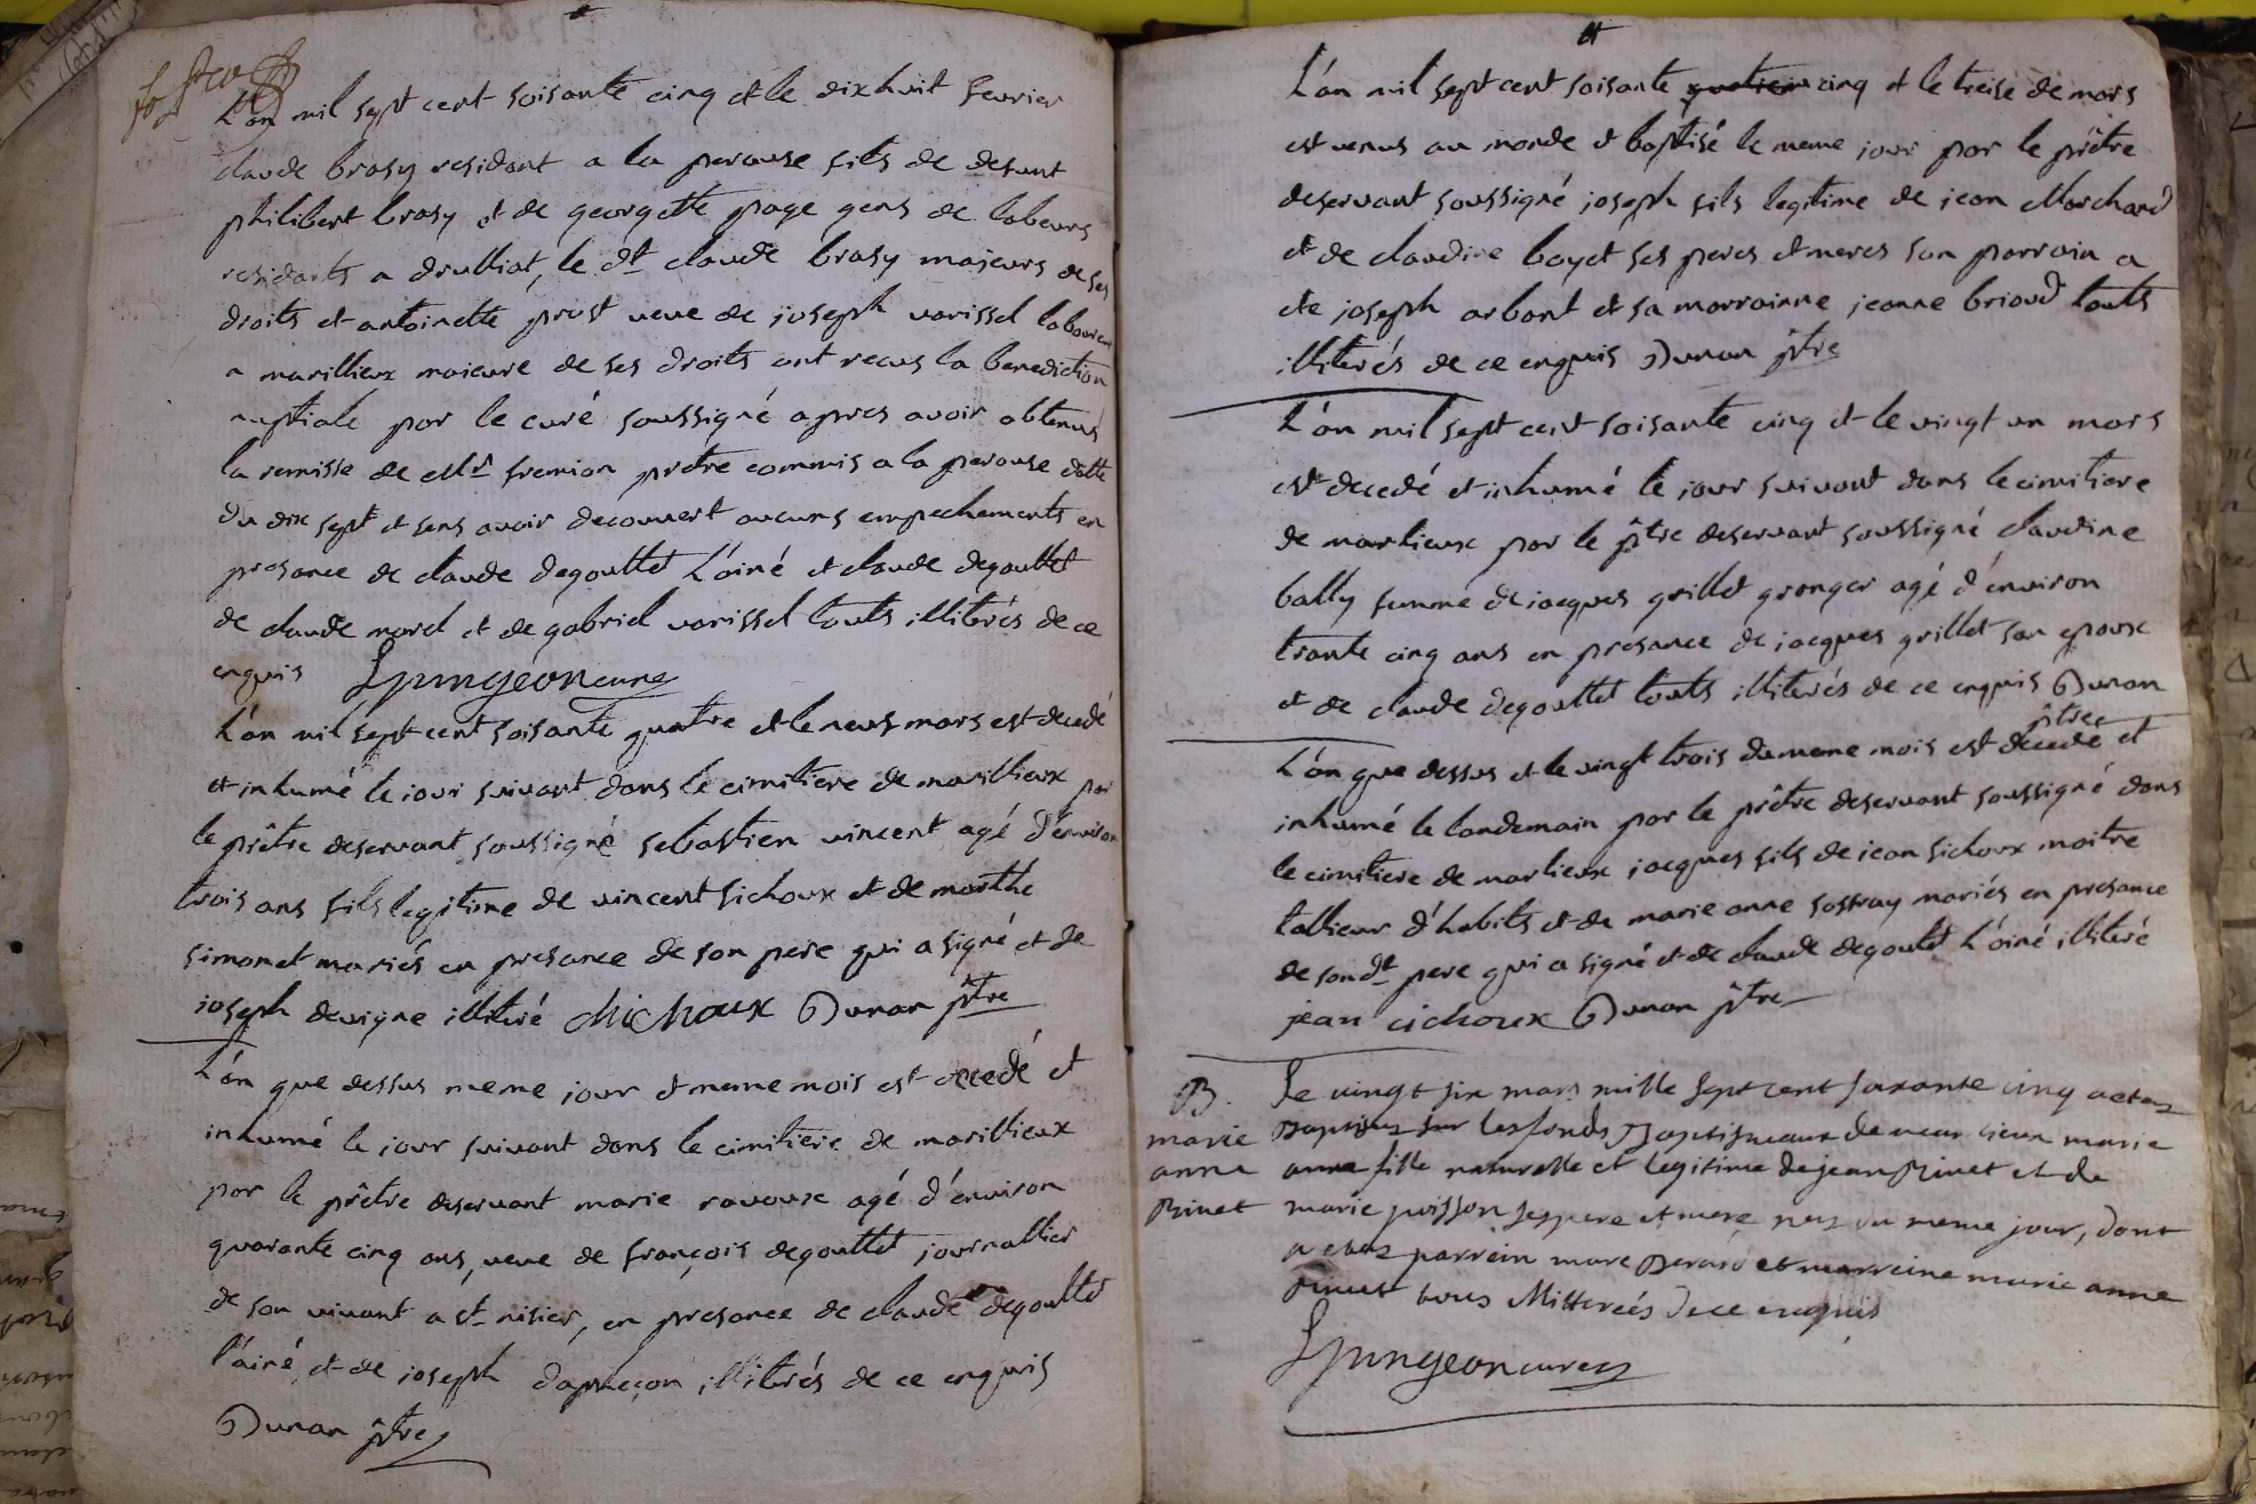 L'an mil sept cent soisante cinq et le dix huit fevrier
claude brasy residant a la perouse fils de defunt
philibert brasy et de georgette page gens de labeurs
residants a drulliat, le dt claude brasy majeurs de ses
droits et antoinette prost veve de joseph varissel laboureur
a marillieux maieure de ses droits ont recus la benediction
nuptiale par le curé soussigné apres avoir obtenus
la remisse de Mr fremion pretre commis a la perouse datte
du dix sept et sens avoir decouvert aucuns empechements en
presance de claude degouttet L'ainé et claude degouttet
de claude morel et de gabriel varissel touts illiterés de ce
enquis Spingeon curé
L'an mil sept cent soisante quatre et le neuf mars est decedé
et inhumé le jour suivant dans le cimitiere de marillieux par
le prêtre deservant soussigné sebastien vincent agé d'environ
trois ans fils legitime de vincent sichoux et de marthe
simonet mariés en presance de son pere qui a signé et de
joseph devigne illiteré chichoux Dunan ptre
L'an que dessus meme jour et meme mois est decedé et
inhumé le jour suivant dans le cimitiere de marillieux
par le prêtre deservant marie ravoux agé d'environ
quarante cinq ans, veve de françois degouttet journallier
de son vivant a st nisier, en presance de claude degouttet
l'ainé et de joseph illiterés de ce enquis
Dunan ptre
L'an mil sept cent soisante cinq et le treise de mars
est venus au monde et baptisé le meme jour par le prêtre
deservant soussigné joseph fils legitime de jean Marchand
et de claudine boyet ses peres et meres son parrain a
ete joseph arbant et sa marrainne jeanne briaud touts
illiterés de ce enquis Dunan ptre
L'an mil sept cent soisante cinq et le vingt un mars
est decedé et inhumé le jour suivant dans le cimitiere
de marlieux par le ptre deservant soussigné claudine
bally femme de jacques grillet granger agé d'environ
trante cinq ans en presance de jacques grillet son epoux
et de claude degouttet touts illiterés de ce enquis Dunan
ptre
L'an que dessus et le vingt trois du meme mois est decedé et
inhumé le landemain par le prêtre deservant soussigné dans
le cimitiere de marlieux jacques fils de jean sichoux maitre
tallieur d'habits et de marie anne sostray mariés en presance
de son dt pere qui a signé et de claude degoutet L'ainé illiteré
jean cichoux Dunan ptre
B.
marie
anne
Rivet
Le vingt six mars mille sept cent soixante cinq a eté
baptisez sur les fonds Baptismeaux de marlieux marie
anne fille naturelle et legitime de jean Rivet et de
marie poisson ses pere et mere nez du meme jour, dont
a etez parrein marc et marreine marie anne
Rivet tous illitterés de ce enquis
Spingeon curez